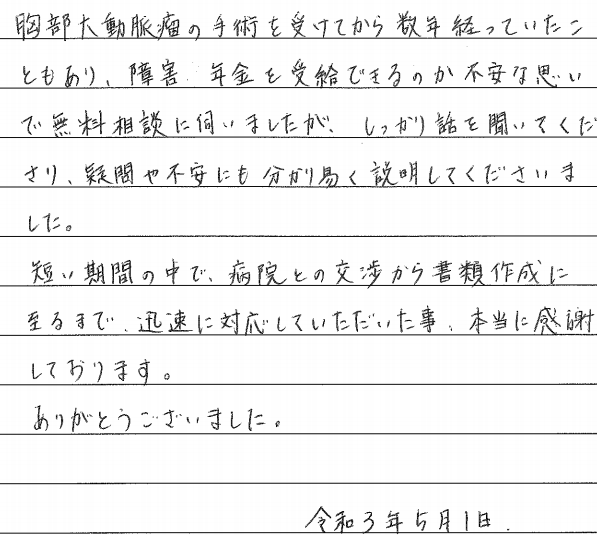 胸部大動脈瘤の手術を受けてから数年経っていたこ
ともあり、障害年金を受給できるのか不安な思い
で無料相談に伺いましたが、しっかり話を聞いてくだ
さり、疑問や不安にも分かり易く説明してくださいま
した。
短い期間の中で、病院との交渉から書類作成に
至るまで、迅速に対応していただいた事、本当に感謝
しております。
ありがとうございました。
令和3年5月1日.